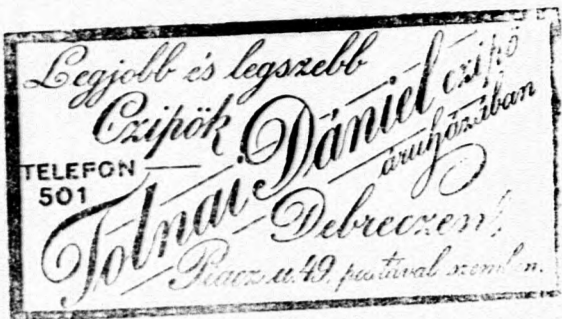 Legjobb és legszebb
Czipök
TELEFON
501
Tolnai Dániel czipő
áruházában
Debreczen!
Piacz u. 49. postával szemben.